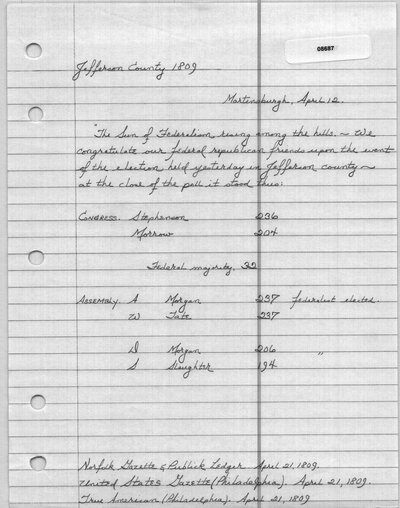 08687
Jefferson County 1809
Martinsburgh, April 12.
"The Sun of Federalism, rising among the hills. ~ We
congratulate our federal republican friends upon the event
of the election held yesterday in Jefferson county ~
at the close of the poll it stood thus:
CONGRESS. Stephenson 236
Morrow 204
Federal majority, 32
ASSEMBLY. A Morgan 237 federalist elected.
W Tate 237
D Morgan 206 "
S Slaughter 194
Norfolk Gazette & Publick Ledger April 21, 1809.
United States Gazette (Philadelphia). April 21, 1809.
True American (Philadelphia). April 21, 1809